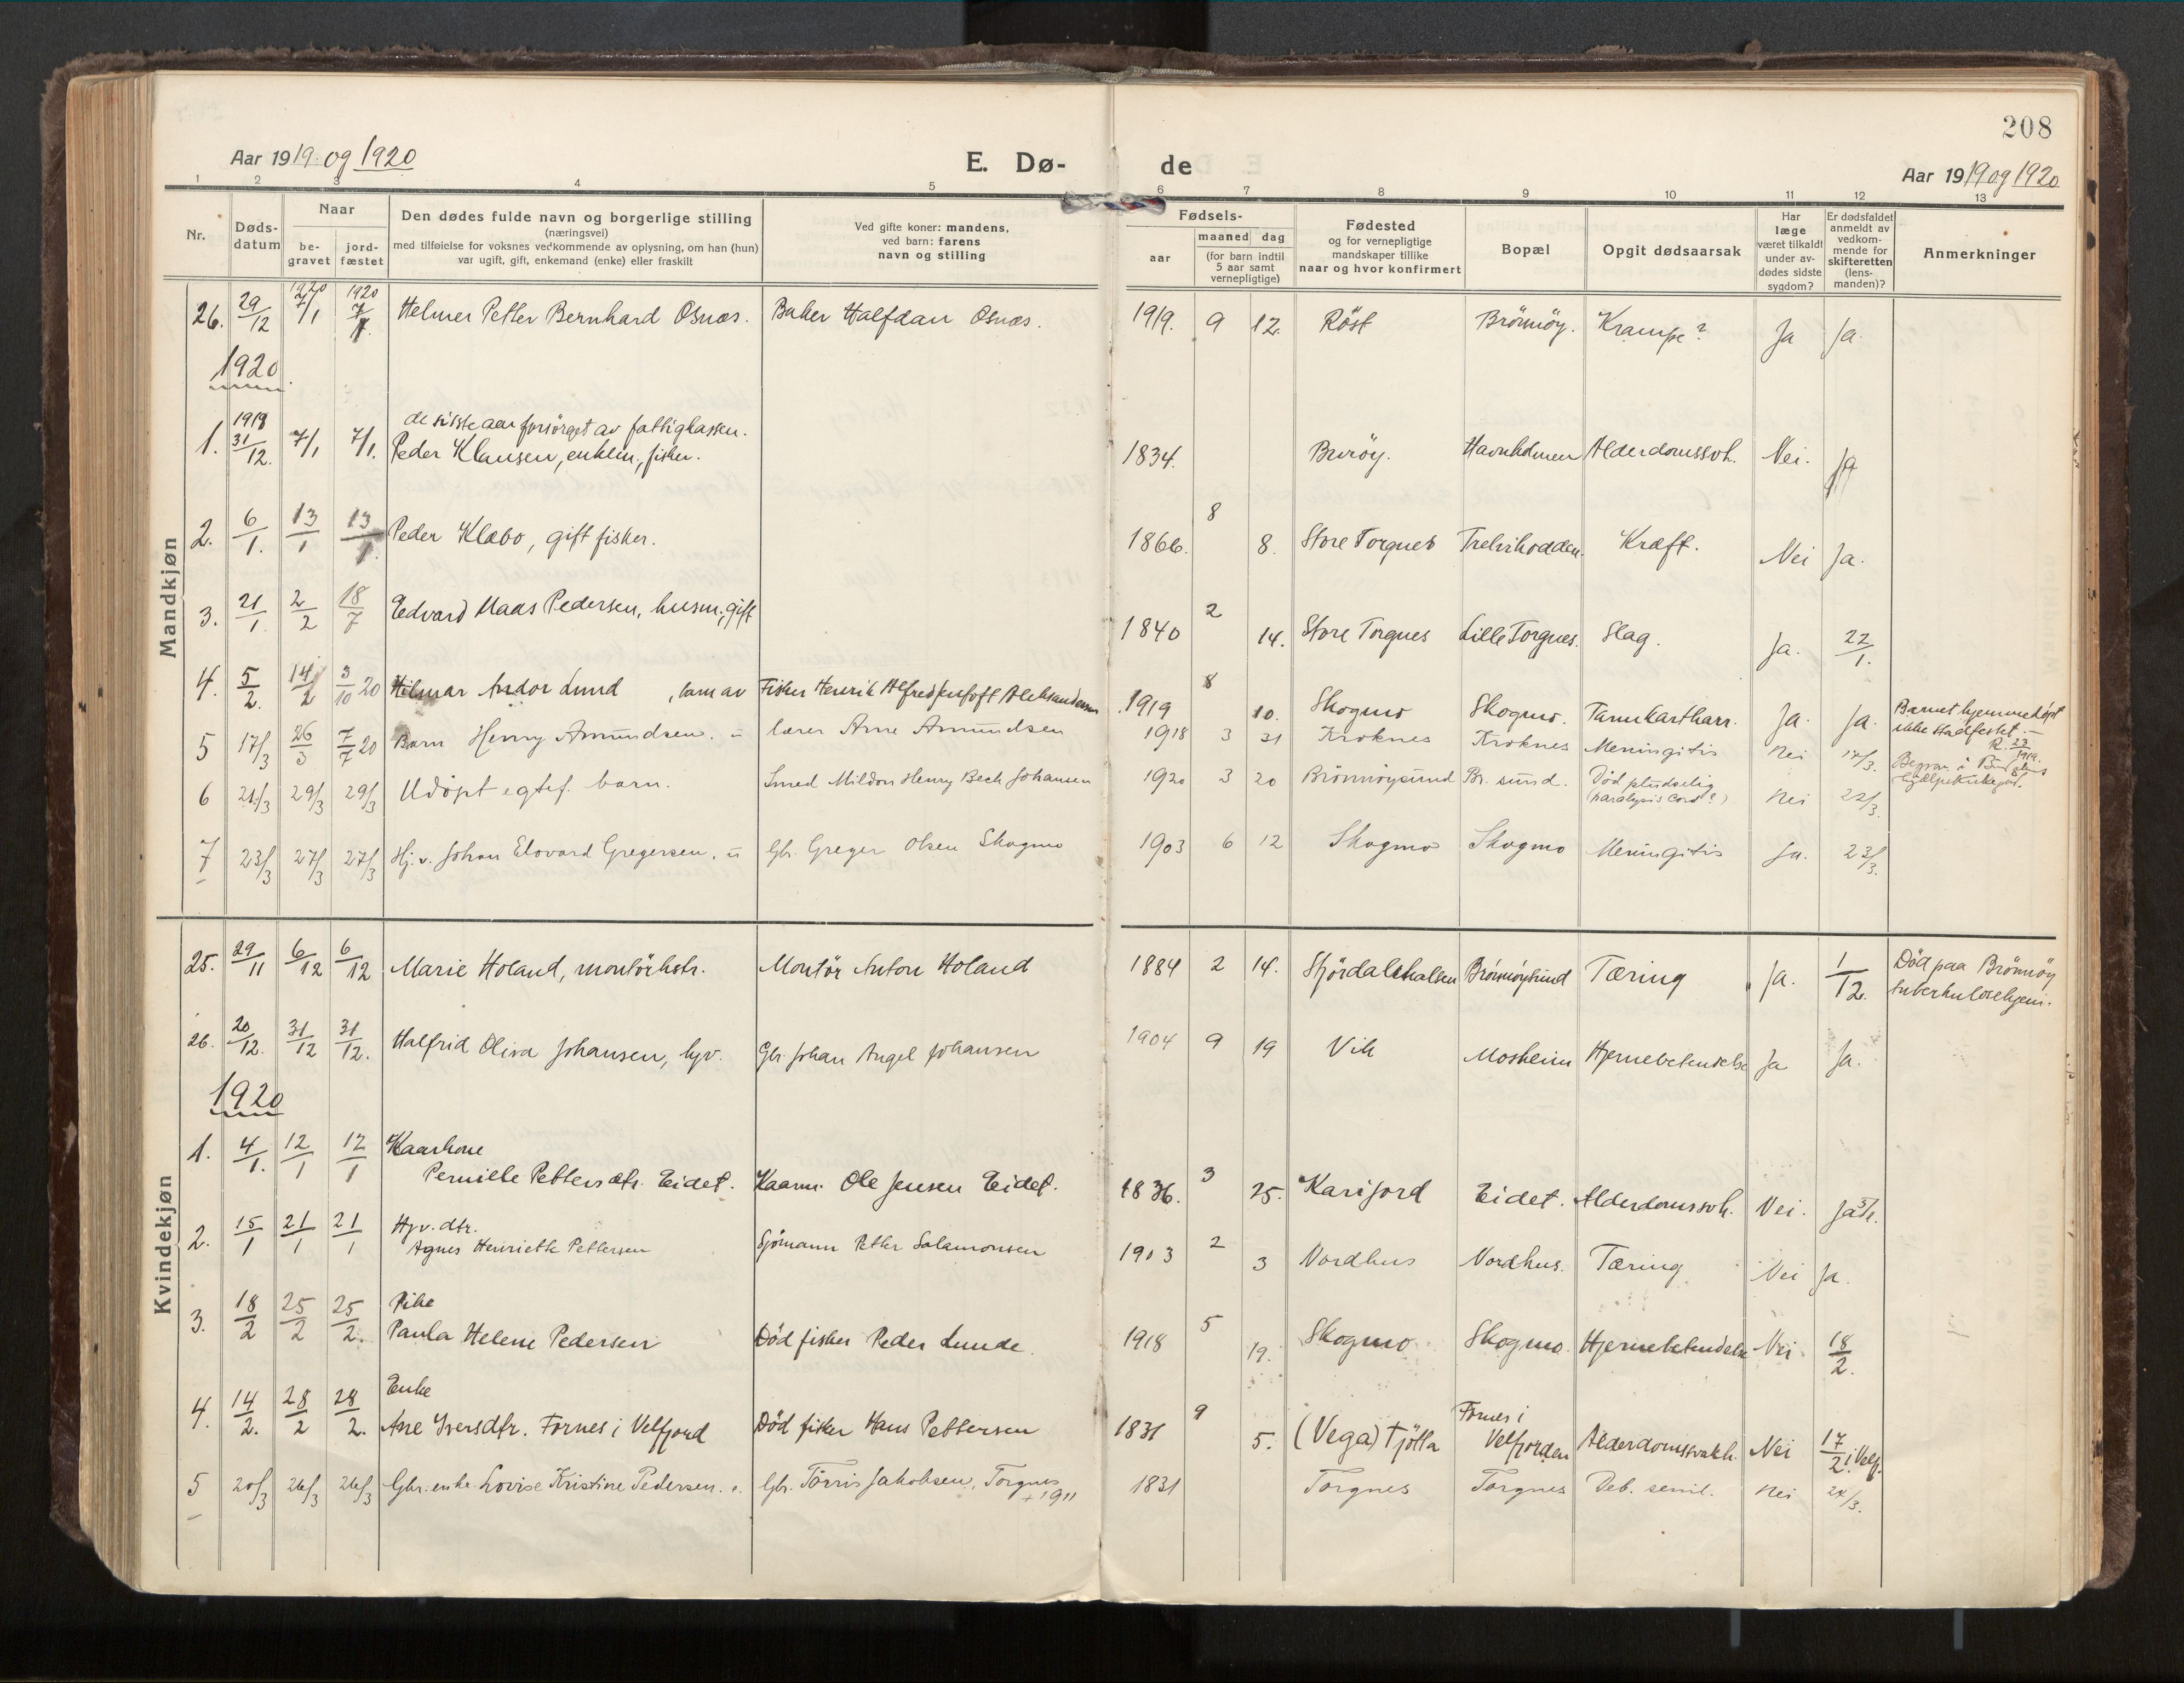 208
Aar 1919 og 1920
E. Dø-
de
Aar 1919 og 1920
1 2 3 4 5 6 7 8 9 10 11 12 13
Nr.
Døds-
datum
Naar
be-
gravet
jord-
fæstet
Den dødes fulde navn og borgerlige stilling
(næringsvei)
med tilføielse for voksnes vedkommende av oplysning, om han (hun)
var ugift, gift, enkemand (enke) eller fraskilt
Ved gifte koner: mandens,
ved barn: farens
navn og stilling
Fødsels-
aar
maaned dag
(for barn indtil
5 aar samt
vernepligtige)
Fødested
og for vernepligtige
mandskaper tillike
naar og hvor konfirmert
Bopæl
Opgit dødsaarsak
Har
læge
været tilkaldt
under av-
dødes sidste
sygdom?
Er dødsfaldet
anmeldt av
vedkom-
mende for
skifteretten
(lens-
manden)?
Anmerkninger
Mandkjøn
26. 29/12 1920 7/1 1920 7/1 Helmer Petter Bernhard Osnæs. Baker Halfdan Osnæs. 1919. 9 12. Röst Brönnöy. Krampe? Ja Ja.
1920.
de sidste aar forsörget av fattigkassen.
1. 1919 31/12. 7/1 7/1. Peder Klausen, enkem., fisker. 1834. Buröy. Havnholmen Alderdomssvh. Nei. Ja
2. 6/1. 13/1 13/1. Peder Klæbo, gift fisker. 1866. 8 8. Store Torgnes Kræft. Nei Ja.
3. 21/1. 2/2 18/7 Edvard Maas Pedersen, husm., gift 1840 2 14. Store Torgnes Lille Torgnes. Slag. Ja. 22/1.
4. 5/2. 14/2 3/10 20 Hilmar Andor Lund, barn av Fisker Henrik Alfred Aleksandersen 1919 8 10. Skogmo Skogmo. Tarmkatharr. Ja. Ja. Barnet hjemmedöpt
ikke stadfestet.
5 17/3 26/3 7/7 20 Barn Henry Amundsen. u lærer Arne Amundsen 1918 3 31 Kroknes Kroknes Meningitis Nei 17/3.
6 21/3 29/3 29/3 Udöpt egtef. barn. Smed Mildor Henry Bech Johansen 1920 3 20 Brönnöysund Br. sund. Död pludselig
(paralysis cord?) Nei 22/3.
7 23/3 27/3 27/3 Hj. v. Johan Edvard Gregersen. u Gbr. Greger Olsen Skogmo 1903 6 12 Skogmo Skogmo Meningitis Ja. 23/3.
Kvindekjøn
25. 29/11 6/12 6/12 Marie Holand, montörhstr. Montör Anton Holand 1884 2 14. Stjördalshalsen Brönnöysund Tæring Ja. 1/12. Död paa Brönnöy
tuberkulosehjem.
26. 20/12. 31/12 31/12. Halfrid Oliva Johansen, hjv. Gbr. Johan Angel Johansen 1904 9 19 Vik Mosheim Hjernebetendelse Ja Ja.
1920
1. 4/1. 12/1 12/1 Kaarkone
Pernille Pettersdtr. Eidet. Kaarm. Ole Jensen Eidet. 1836. 3 25. Karifjord Eidet. Alderdomssvh. Nei. Ja
2. 15/1 21/1 21/1 Hjv. dtr.
Agnes Henriette Pettersen Sjömann Petter Salamonsen 1903 2 3 Nordhus Nordhus. Tæring Nei Ja.
3. 18/2 25/2 25/2. Pike
Paula Helene Pedersen Död fisker Peder Lunde. 1918 5 19. Skogmo Skogmo. Hjernebetendelse Nei 18/2.
4. 14/2. 28/2 28/2. Enke
Ane Iversdtr. Fornes i Velfjord Död fisker Hans Pettersen 1831 9 5. (Vega) Tjötta Fornes i
Velfjorden Alderdomssvakh. Nei 17/2. i Velf.
5 20/3 26/3 26/3 Gbr. enke Lovise Kristine Pedersen. Gbr. Törris Jakobsen, Torgnes
+ 1911 1831 Torgnes Torgnes Deb. senil. Nei 24/3.